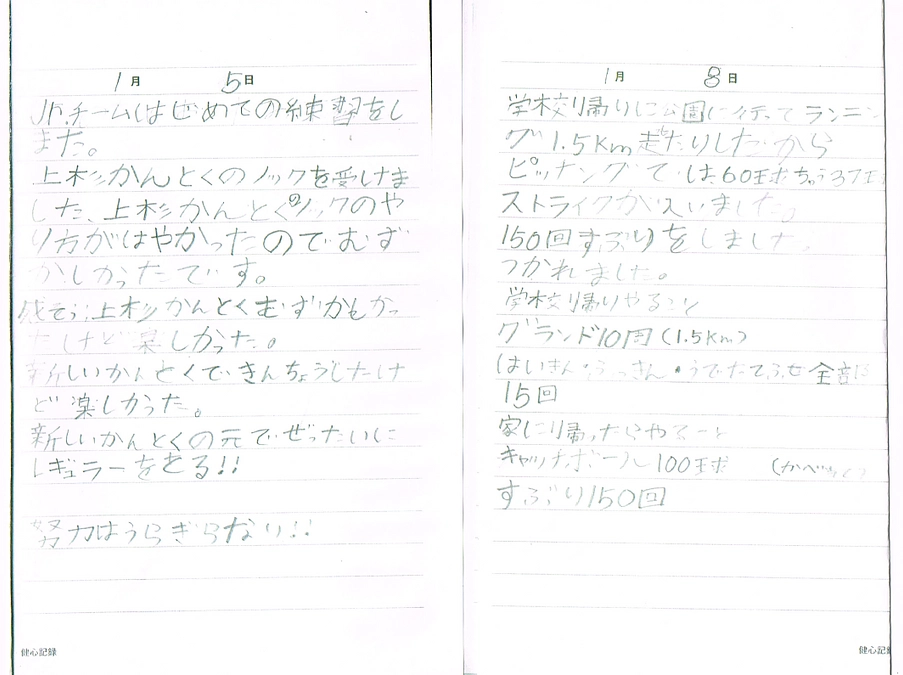 1月 5日
Jr.チームはじめての練習をし
ました。
上杉かんとくのノックを受けま
した、上杉かんとくのノックのや
り方がはやかったのでむず
かしかったです。
感そうは上杉かんとくむずかしかっ
たけど楽しかった。
新しいかんとくできんちょうしたけ
ど楽しかった。
新しいかんとくの元でぜったいに
レギュラーをとる!!
努力はうらぎらない!!
健心記録
1月 8日
学校帰りに公園に行ってランニン
グ 1.5Km走ったりしたから
ピッチングでは60球ちゅう37球
ストライクが入いました。
150回すぶりをしました。
つかれました。
学校帰りやること
グランド10周(1.5Km)
はいきん・ふっきん・うでたてふせ 全部
15回
家に帰ったらやること
キャッチボール100球 (かべ
すぶり150回
健心記録